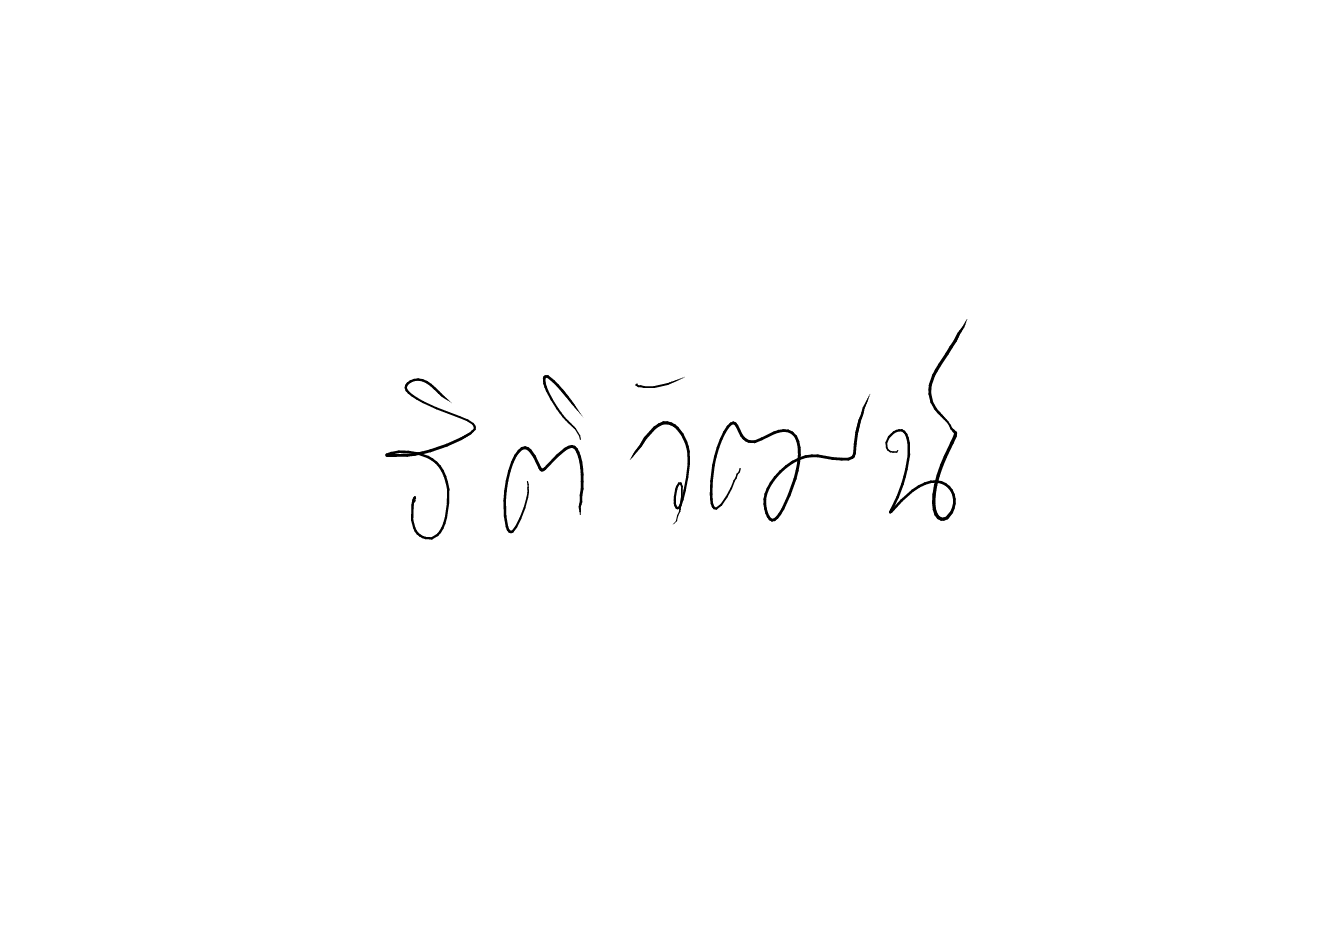 ฐิติวัฒน์